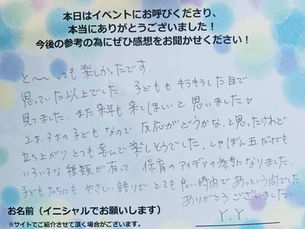 本日はイベントにお呼びくださり、
本当にありがとうございました！
今後の参考の為にぜひ感想をお聞かせください！
と〜っても楽しかったです。
思っていた以上でした。子どももキラキラした目で
見てました。また来年も来てほしいと思いました♡
2才、3才の子どもなので反応がどうかな、と思ったけれど
立ち上がりとても喜んで楽しそうでした。しゃぼん玉だけでも
いろいろな種類が有って、保育のアイデアの勉強になりました。
子どもたちにもやさしい語りでとても良い時間であっという間でした
ありがとうございました
お名前（イニシャルでお願いします）
Y.Y.
※サイトでご紹介させて頂く場合がございます。